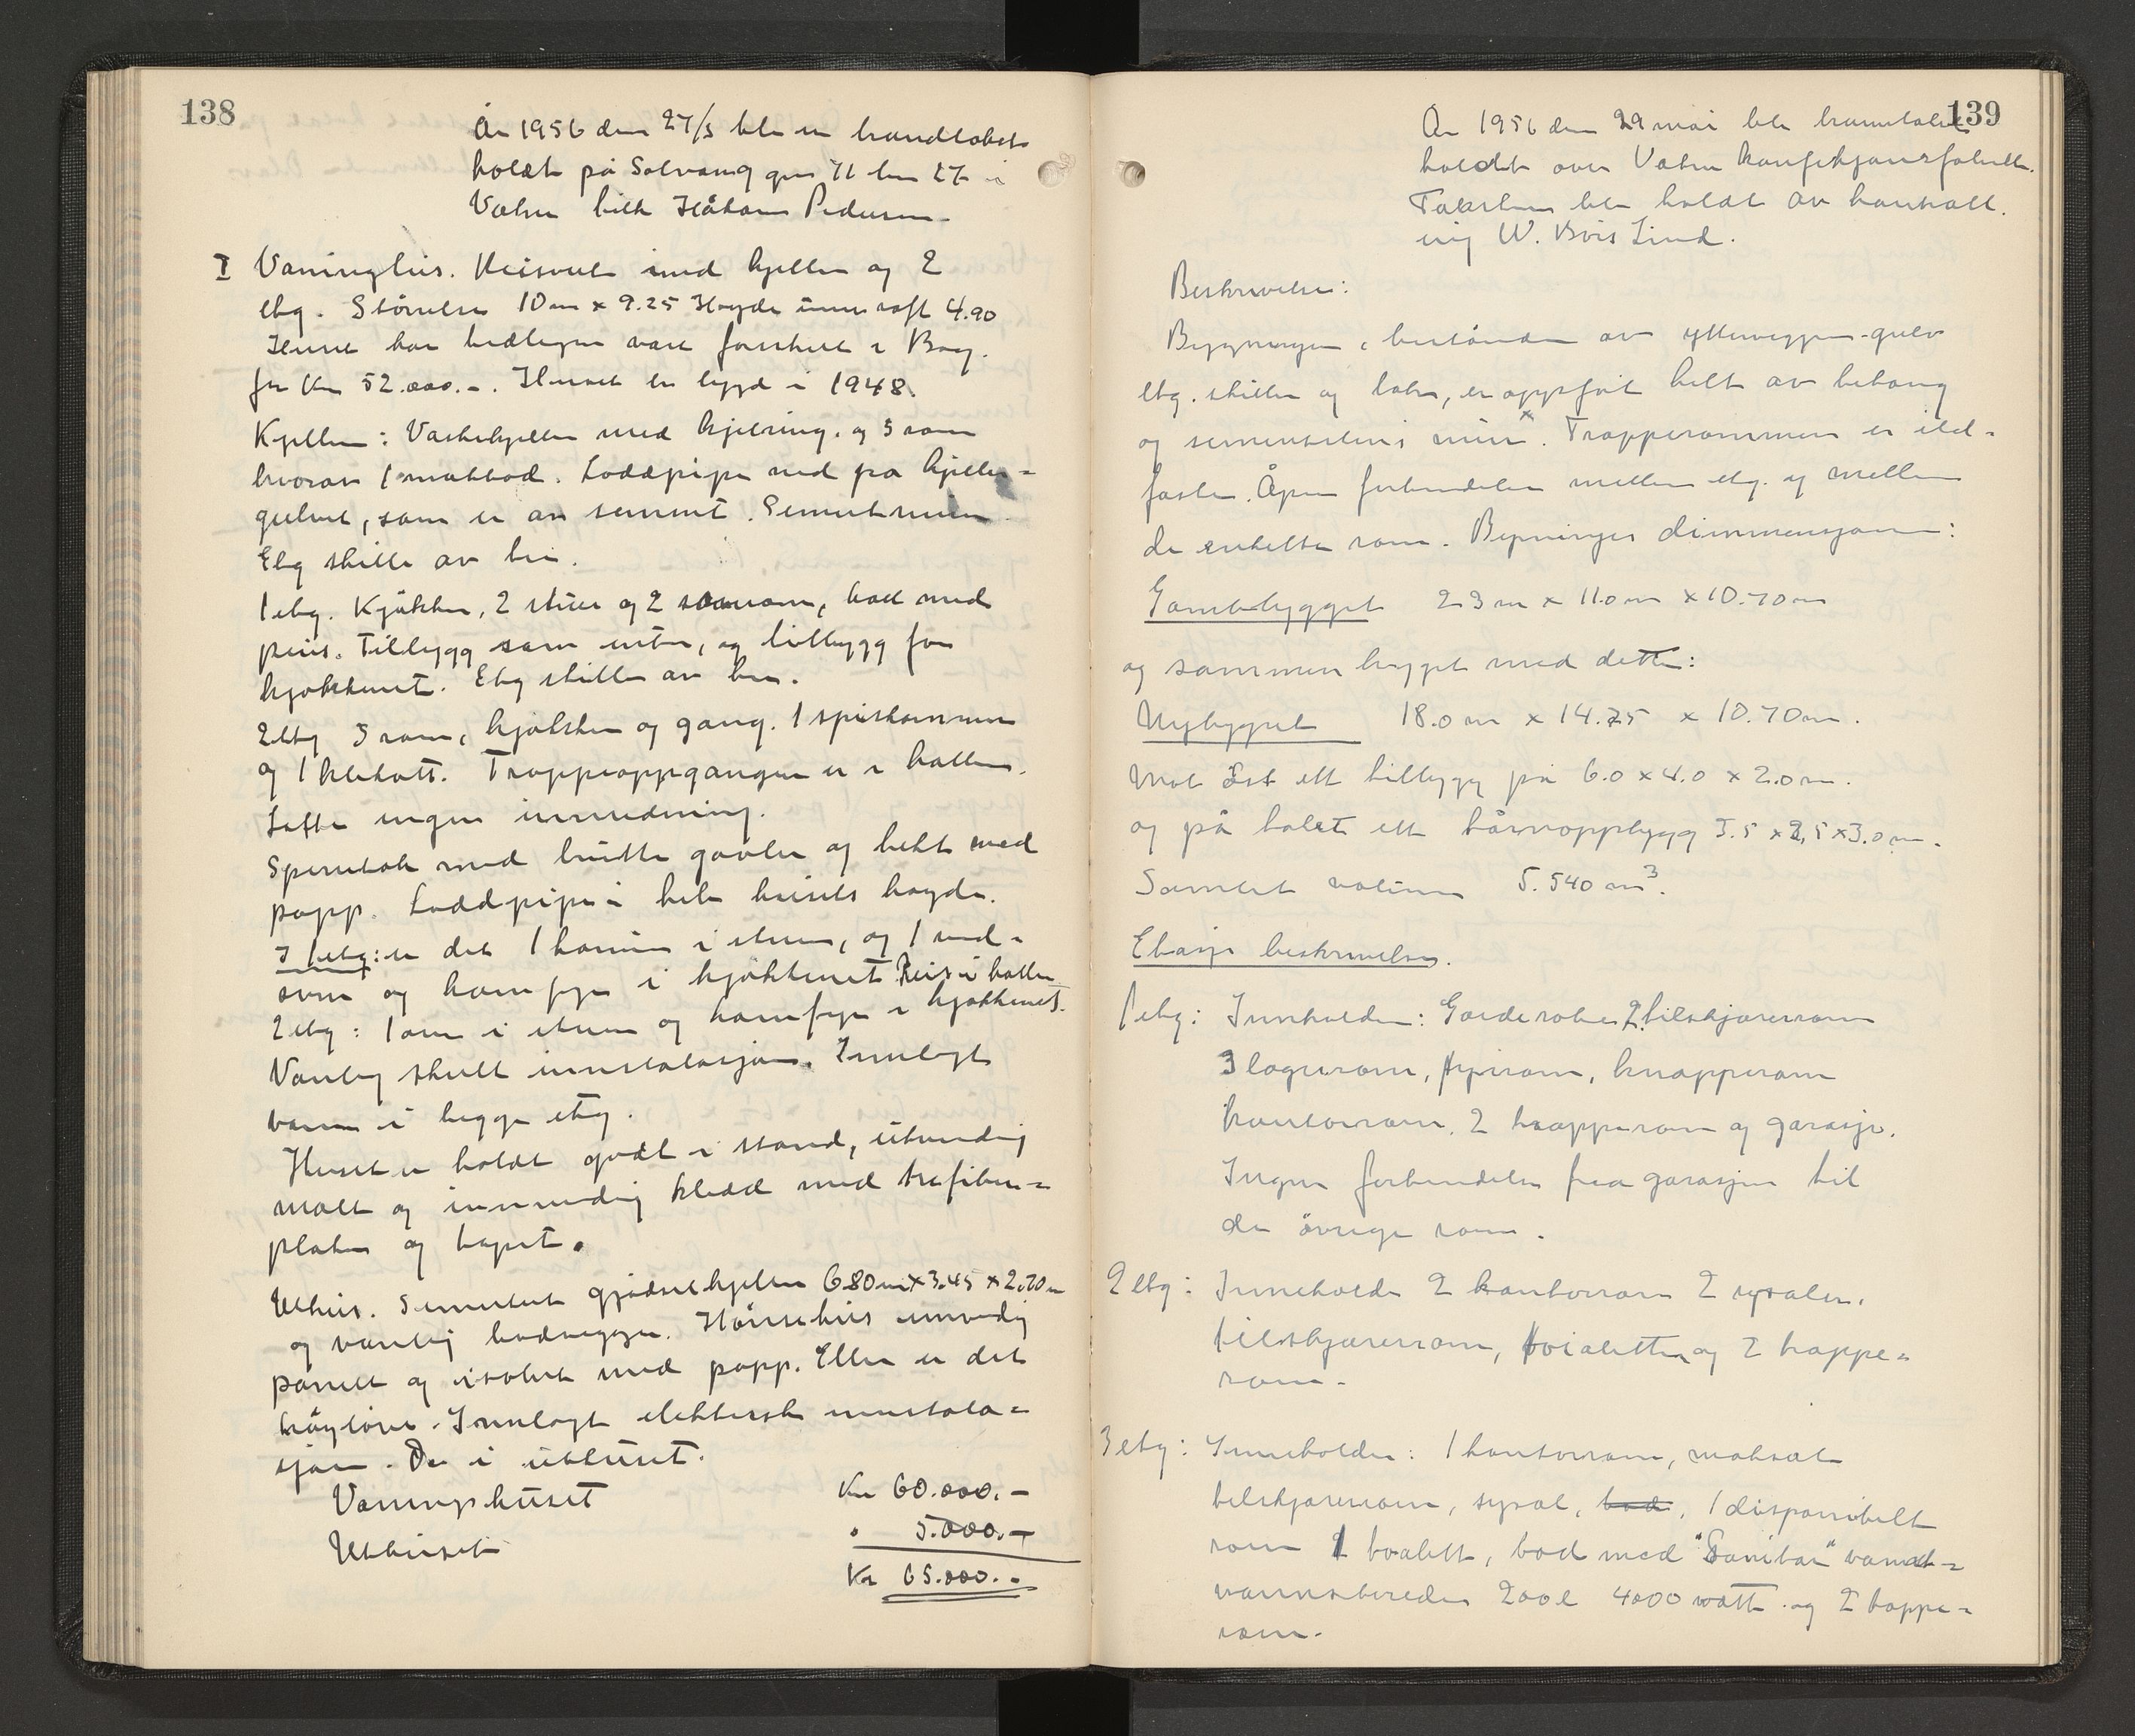 138
År 1956 den 27/3 ble en brandtakst
holdt på Solvang gnr 71 bnr 27 i
Våler tilh Håkon Pedersen.
I Våninghus. Reisverk med kjeller og 2
etg. Størrelse 10 m x 9.25 Høyde inn raft 4.90
Huset har tidligere vært forsikret i Brag.
for Kr 52.000.-. Huset er bygd i 1948.
Kjeller: Vaskekjeller med kjelering. og 3 rom
hvorav 1 matbod. Loddpipe ned på kjeller-
gulvet, som er av sement. Sementmur
Etg skille av tre.
1 etg. Kjøkken, 2 stuer og 2 soverom, hall med
peis. Tilbygg som entre, og tilbygg for
kjøkkenet. Etg skille av tre.
2 etg 3 rom, kjøkken og gang. 1 spiskammer
og 1 klekott. Trappeoppgangen er i hallen.
Lofte ingen innredning.
Sperretak med brutte gavler og tekt med
papp. Loddpipe i hele husets høyde.
I 1 etg: er det 1 kamin i stuen, og 1 ved-
ovn og komfyr i kjøkkenet Peis i hallen
2 etg: 1 ovn i stuen og komfyr i kjøkkenet.
Vanlig skult innstalasjon. Innlagt
vann i begge etg.
Huset er holdt godt i stand, utvendig
malt og innvendig kledd med trefiber-
plater og tapet.
Uthus. Sementert gjødselkjeller 6.80 m x 3.45 x 2.70 m
og vanlig bodvegger. Hønsehus innvendig
panelt og isolert med papp. Ellers er det
høyløve. Innlagt elektrisk innstala-
sjon. Do i uthuset.
Våningshuset Kr 60.000.-
Uthuset " 5.000.-
Kr 65.000.-
139
År 1956 den 29 mai ble branntakst
holdt over Våler konfeksjonsfabrikk.
Taksten ble holdt av kontroll.
ing W. Bvis Lind.
Beskrivelse:
Bygningen, bestående av yttervegger-gulv
etg. skiller og tak, er oppført helt av betong
og sementsteins mur x. Trapperommene er ild-
faste. Åpen forbindelse mellem etg. og mellem
de enkelte rom. Bygningens dimmensjoner:
Gamlebygget 23 m x 11.0 m x 10.70 m
og sammen bygget med dette:
Nybygget 18.0 m x 14.75 x 10.70 m.
Mot øst ett tilbygg på 6.0 x 4.0 x 2.0 m.
og på taket ett tårnoppbygg 3.5 x 2,5 x 3.0 m.
Samlet volum 5.540 m3.
Etasje beskrivelse.
1 etg: Innholder: Garderobe 2 tilskjærerrom
3 lagerrom, fyrrom, knapperom
kontorrom, 2 trapperom og garasje.
Ingen forbindelse fra garasjen til
de øvrige rom.
2 etg: Inneholder 2 kontorrom 2 sysaler,
tilskjærerrom, toialetter og 2 trappe-
rom.
3 etg: Inneholder: 1 kontorrom, matsal
tilskjærerrom, sysal, bad, 1 disponibelt
rom 1 toalett, bod med "Sanitar" varmt-
vannsbereder 200 l 4000 watt. og 2 trappe-
rom.